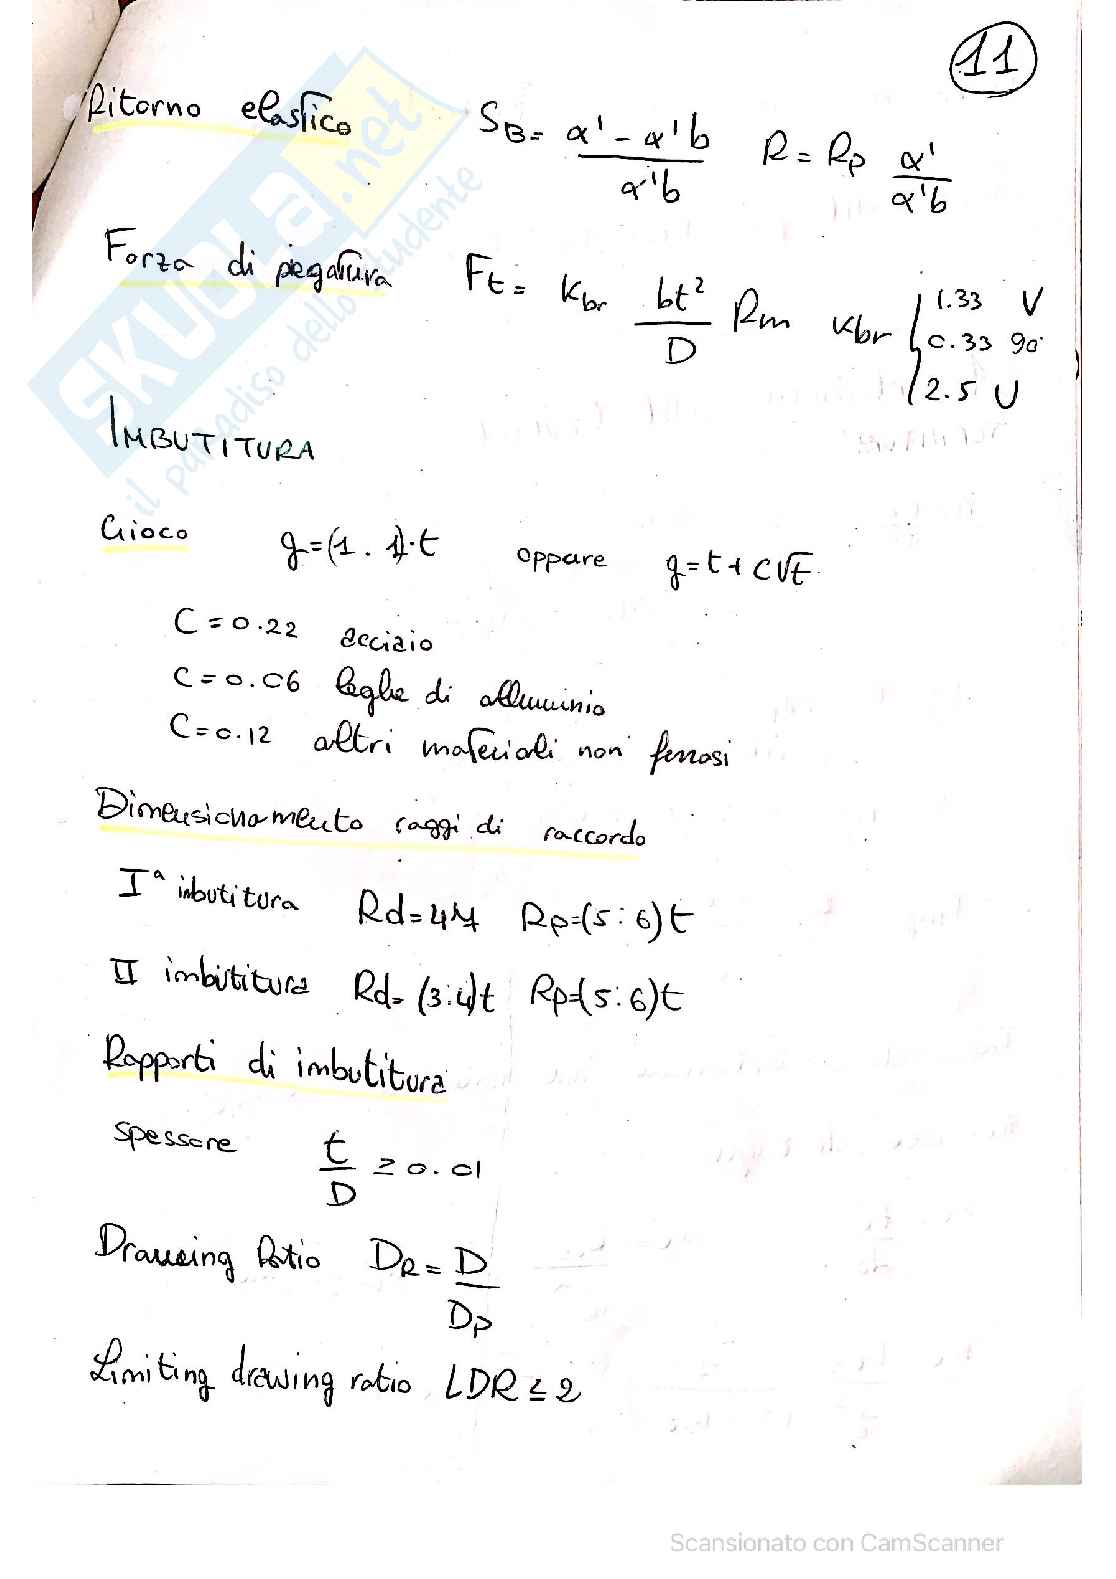 11
Ritorno elastico S_B = (α' - α'b)/(α'b) R = Rp α'/(α'b)
Forza di piegatura Ft = Kbr bt²/D Rm Kbr { 1.33 V
0.33 90°
2.5 U
IMBUTITURA
Gioco g=(1.1)·t oppure g=t+c√t
C=0.22 acciaio
C=0.06 leghe di alluminio
C=0.12 altri materiali non ferrosi
Dimensionamento raggi di raccordo
Iª imbutitura Rd= Rp=(5:6)t
II imbutitura Rd=(3:4)t Rp=(5:6)t
Rapporti di imbutitura
spessore t/D ≥ 0.01
Drawing Ratio D_R = D/Dp
Limiting drawing ratio LDR ≤ 2
SKUOLA.net
il paradiso dello studente
Scansionato con CamScanner